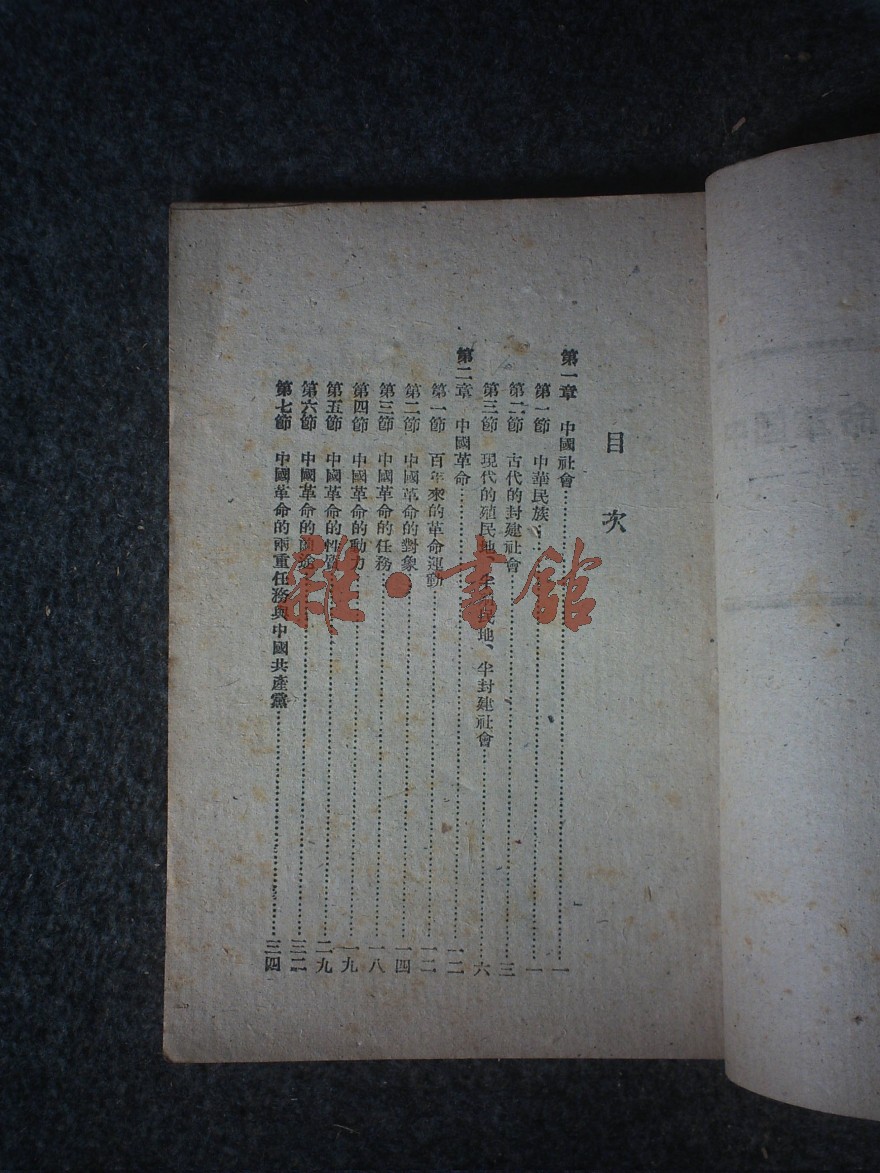 目次
第一章 中國社會……一
第一節 中華民族……一
第二節 古代的封建社會……三
第三節 現代的殖民地、半殖民地、半封建社會……六
第二章 中國革命……一二
第一節 百年來的革命運動……一二
第二節 中國革命的對象……一四
第三節 中國革命的任務……一八
第四節 中國革命的動力……一九
第五節 中國革命的性質……二九
第六節 中國革命的前途……三二
第七節 中國革命的兩重任務與中國共產黨……三四
雜·書館